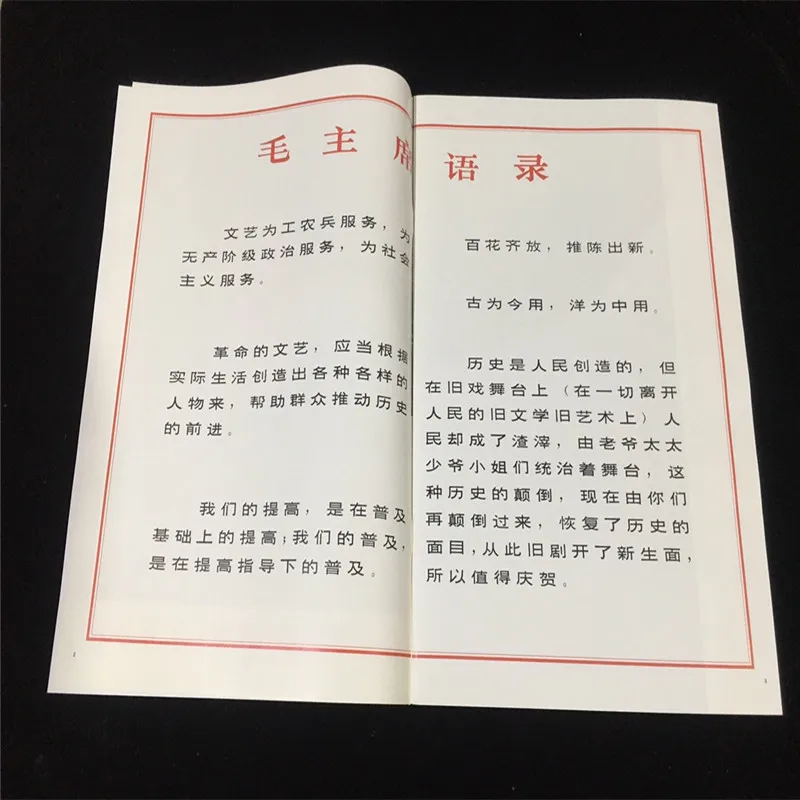 毛主席语录
文艺为工农兵服务，为
无产阶级政治服务，为社会
主义服务。
革命的文艺，应当根据
实际生活创造出各种各样的
人物来，帮助群众推动历史
的前进。
我们的提高，是在普及
基础上的提高；我们的普及，
是在提高指导下的普及。
百花齐放，推陈出新。
古为今用，洋为中用。
历史是人民创造的，但
在旧戏舞台上（在一切离开
人民的旧文学旧艺术上）人
民却成了渣滓，由老爷太太
少爷小姐们统治着舞台，这
种历史的颠倒，现在由你们
再颠倒过来，恢复了历史的
面目，从此旧剧开了新生面，
所以值得庆贺。